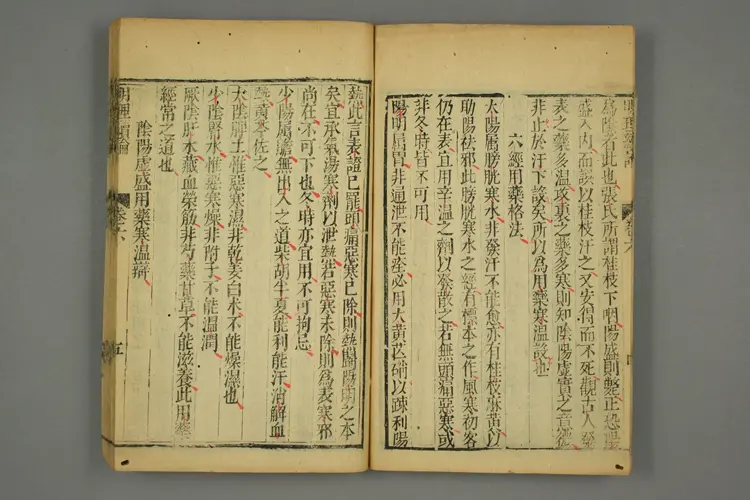 爲傷者此也張氏所謂桂枝下咽陽盛則斃正恐陽
盛入內而誤以桂枝汗之又安得而不死觀古人發
表之藥多溫攻裏之藥多寒則知陰陽虛實之音
非止於汗下誤矣所以爲用藥寒溫設也
六經用藥格法
太陽屬膀胱寒水非發汗不能愈亦有桂枝麻黃以
助陽祛邪此膀胱寒水之經有標本之作風寒初客
仍在表宜用辛溫之劑以發散之若無頭痛惡寒或
非冬時皆不可用
陽明屬胃非通泄不能痊必用大黃芒硝以疎利陽
熱此言表證已罷即痛惡寒已除則熱歸陽明之本
矣宜承氣湯寒劑以泄熱若惡寒未除則爲表寒邪
尚在不可下也冬時亦宜用不可拘忌
少陽屬膽無出入之道柴胡半夏能利能汗消解血
熱黃芩佐之
太陰脾土惟惡寒濕非乾姜白术不能燥濕也
少陰腎水惟惡寒燥非附子不能溫潤
厥陰肝木藏血榮筋非芍藥甘草不能滋養此用藥
經常之道也
陰陽虛盛用藥寒溫辯
卷六
五